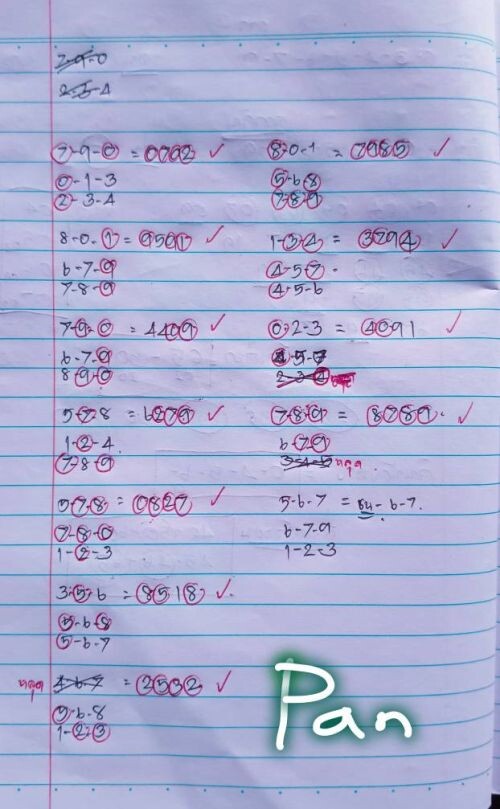 7-9-0
2-3-4
7-9-0 = 0702 ✓
0-1-3
2-3-4
8-0-1 = 7985 ✓
5-6-8
7-8-9
8-0-1 = 9591 ✓
6-7-9
7-8-9
1-3-4 = 3794 ✓
4-5-7
4-5-6
7-9-0 = 4409 ✓
6-7-9
8-9-0
0-2-3 = 4091 ✓
4-5-7
2-3-4 หลุด
5-7-8 = 6279 ✓
1-2-4
7-8-9
7-8-9 = 8789 ✓
6-7-9
3-4-5 หลุด
5-7-8 = 0827 ✓
7-8-0
1-2-3
5-6-7 = ชน 6-7
6-7-9
1-2-3
3-5-6 = 8518 ✓
5-6-8
5-6-7
หลุด 4-6-7 = 2532 ✓
5-6-8
1-2-3
Pan